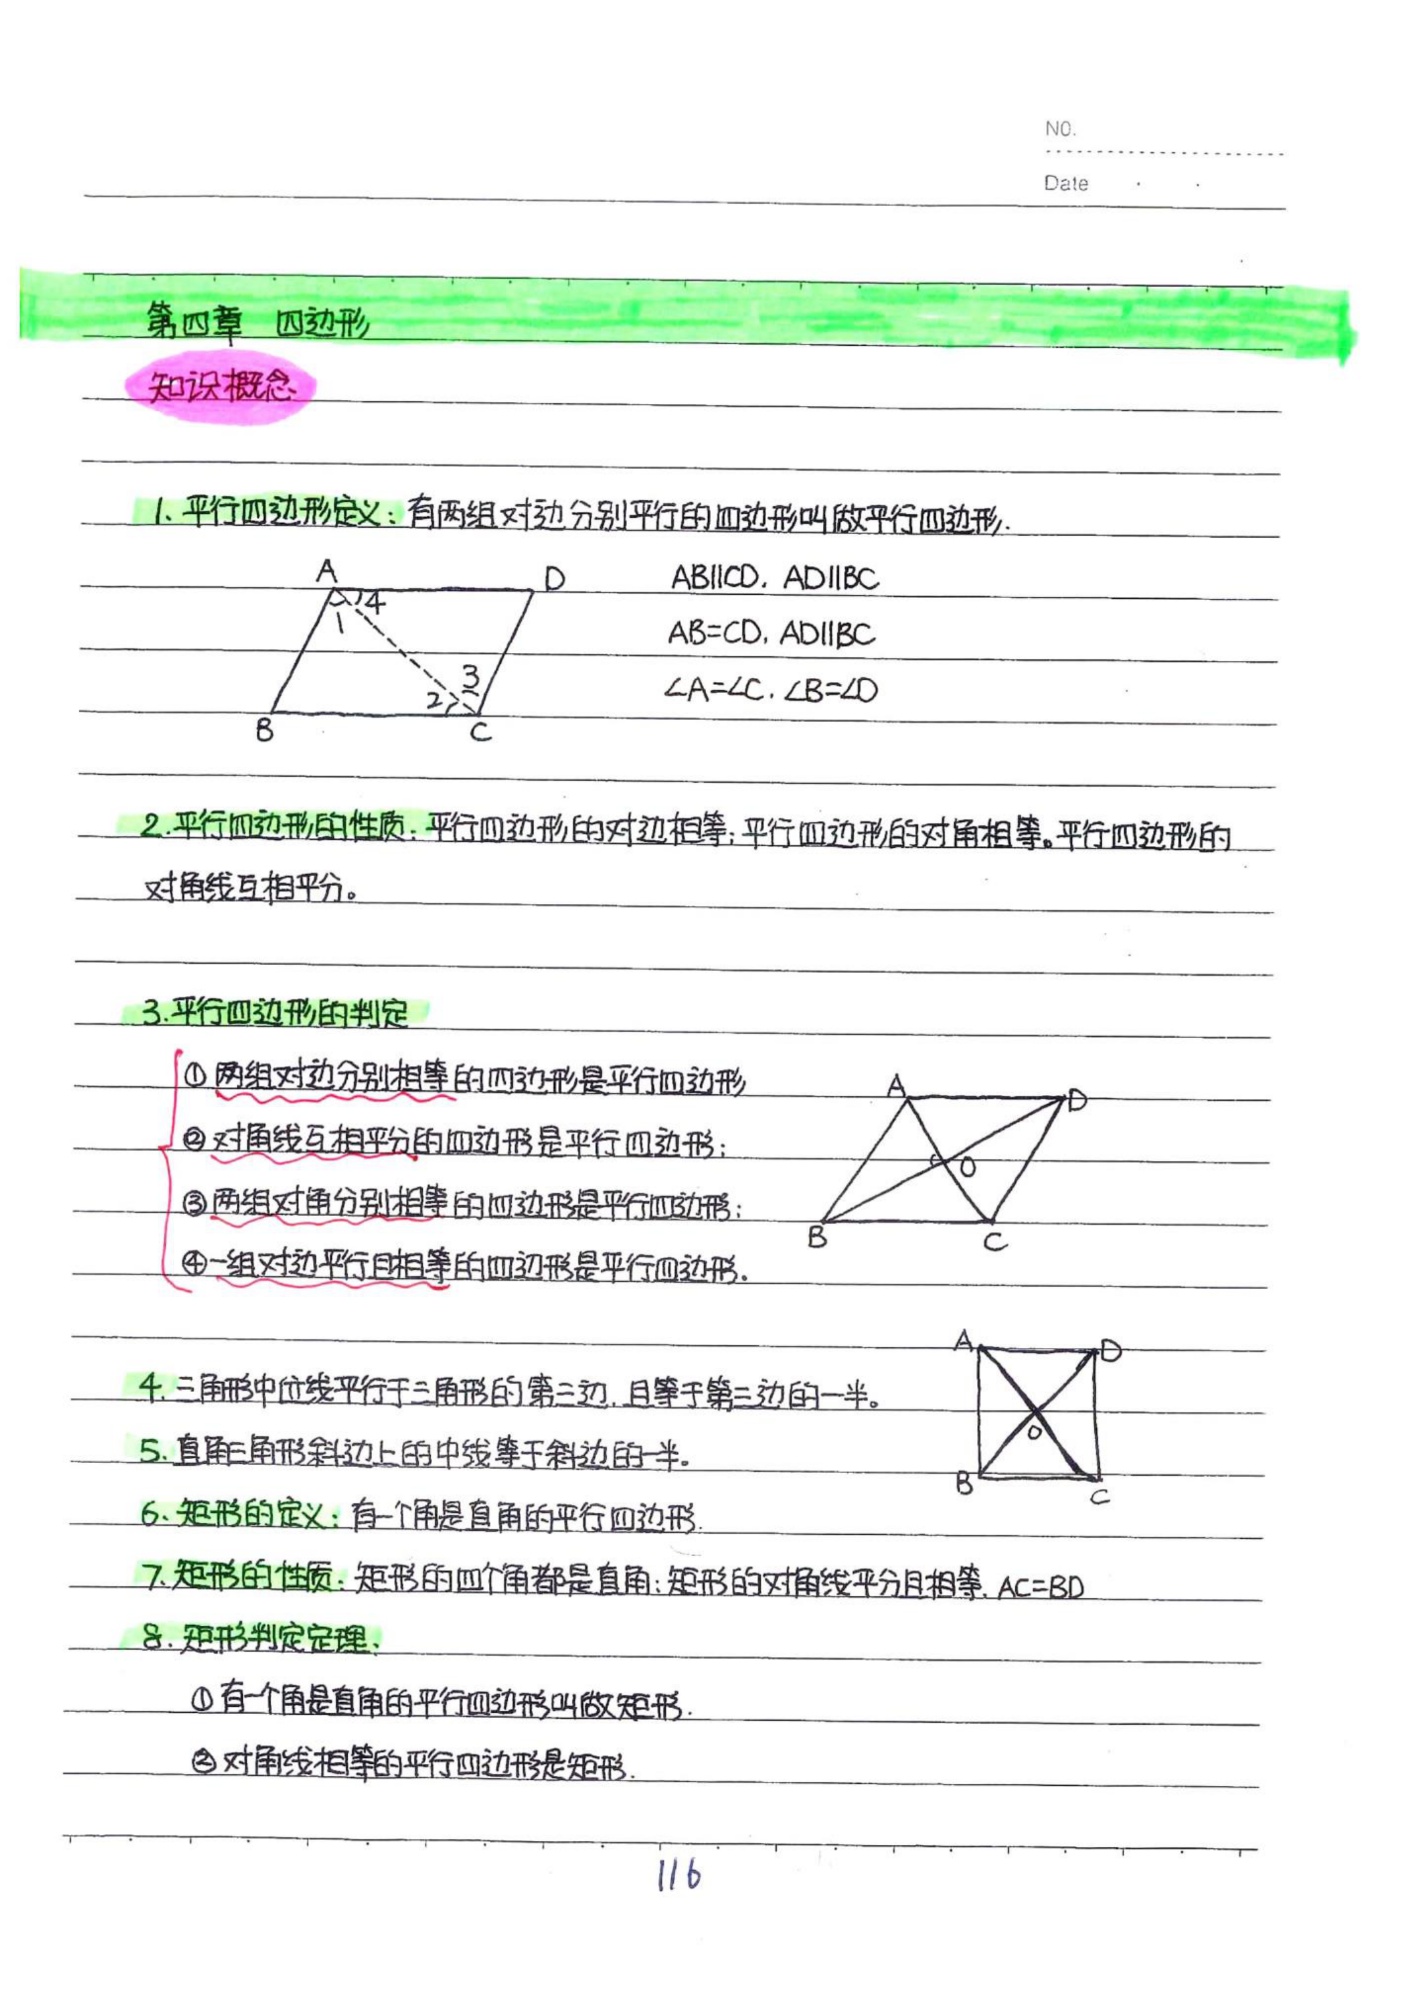 NO.
Date
第四章 四边形
知识概念
1、平行四边形定义：有两组对边分别平行的四边形叫做平行四边形.
A
D
AB∥CD, AD∥BC
1
4
AB=CD, AD∥BC
2
3
∠A=∠C, ∠B=∠D
B
C
2.平行四边形的性质：平行四边形的对边相等；平行四边形的对角相等。平行四边形的
对角线互相平分。
3.平行四边形的判定
①两组对边分别相等的四边形是平行四边形
②对角线互相平分的四边形是平行四边形；
③两组对角分别相等的四边形是平行四边形；
④一组对边平行且相等的四边形是平行四边形.
A
D
O
B
C
4.三角形中位线平行于三角形的第三边,且等于第三边的一半。
5.直角三角形斜边上的中线等于斜边的一半。
A
D
O
B
C
6、矩形的定义：有一个角是直角的平行四边形.
7.矩形的性质：矩形的四个角都是直角；矩形的对角线平分且相等. AC=BD
8.矩形判定定理：
①有一个角是直角的平行四边形叫做矩形.
②对角线相等的平行四边形是矩形.
116